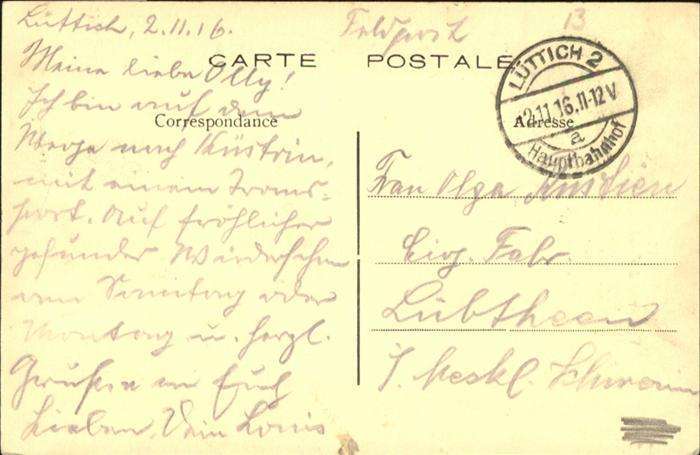 Lüttich, 2.11.16.
Feldpost
13
CARTE POSTALE
LÜTTICH 2
2.11.16.11-12V
a
Hauptbahnhof
Correspondance
Adresse
Meine liebe Olly!
Ich bin auf dem
Wege nach Küstrin,
mit einem Trans-
port. Auf fröhliches
gesundes Wiedersehen
am Sonntag oder
Montag u. herzl.
Grüßen an Euch
Lieben. Dein Louis
Frau Olga
Cig. Fabr.
Lübtheen
i. Meckl. Schwerin